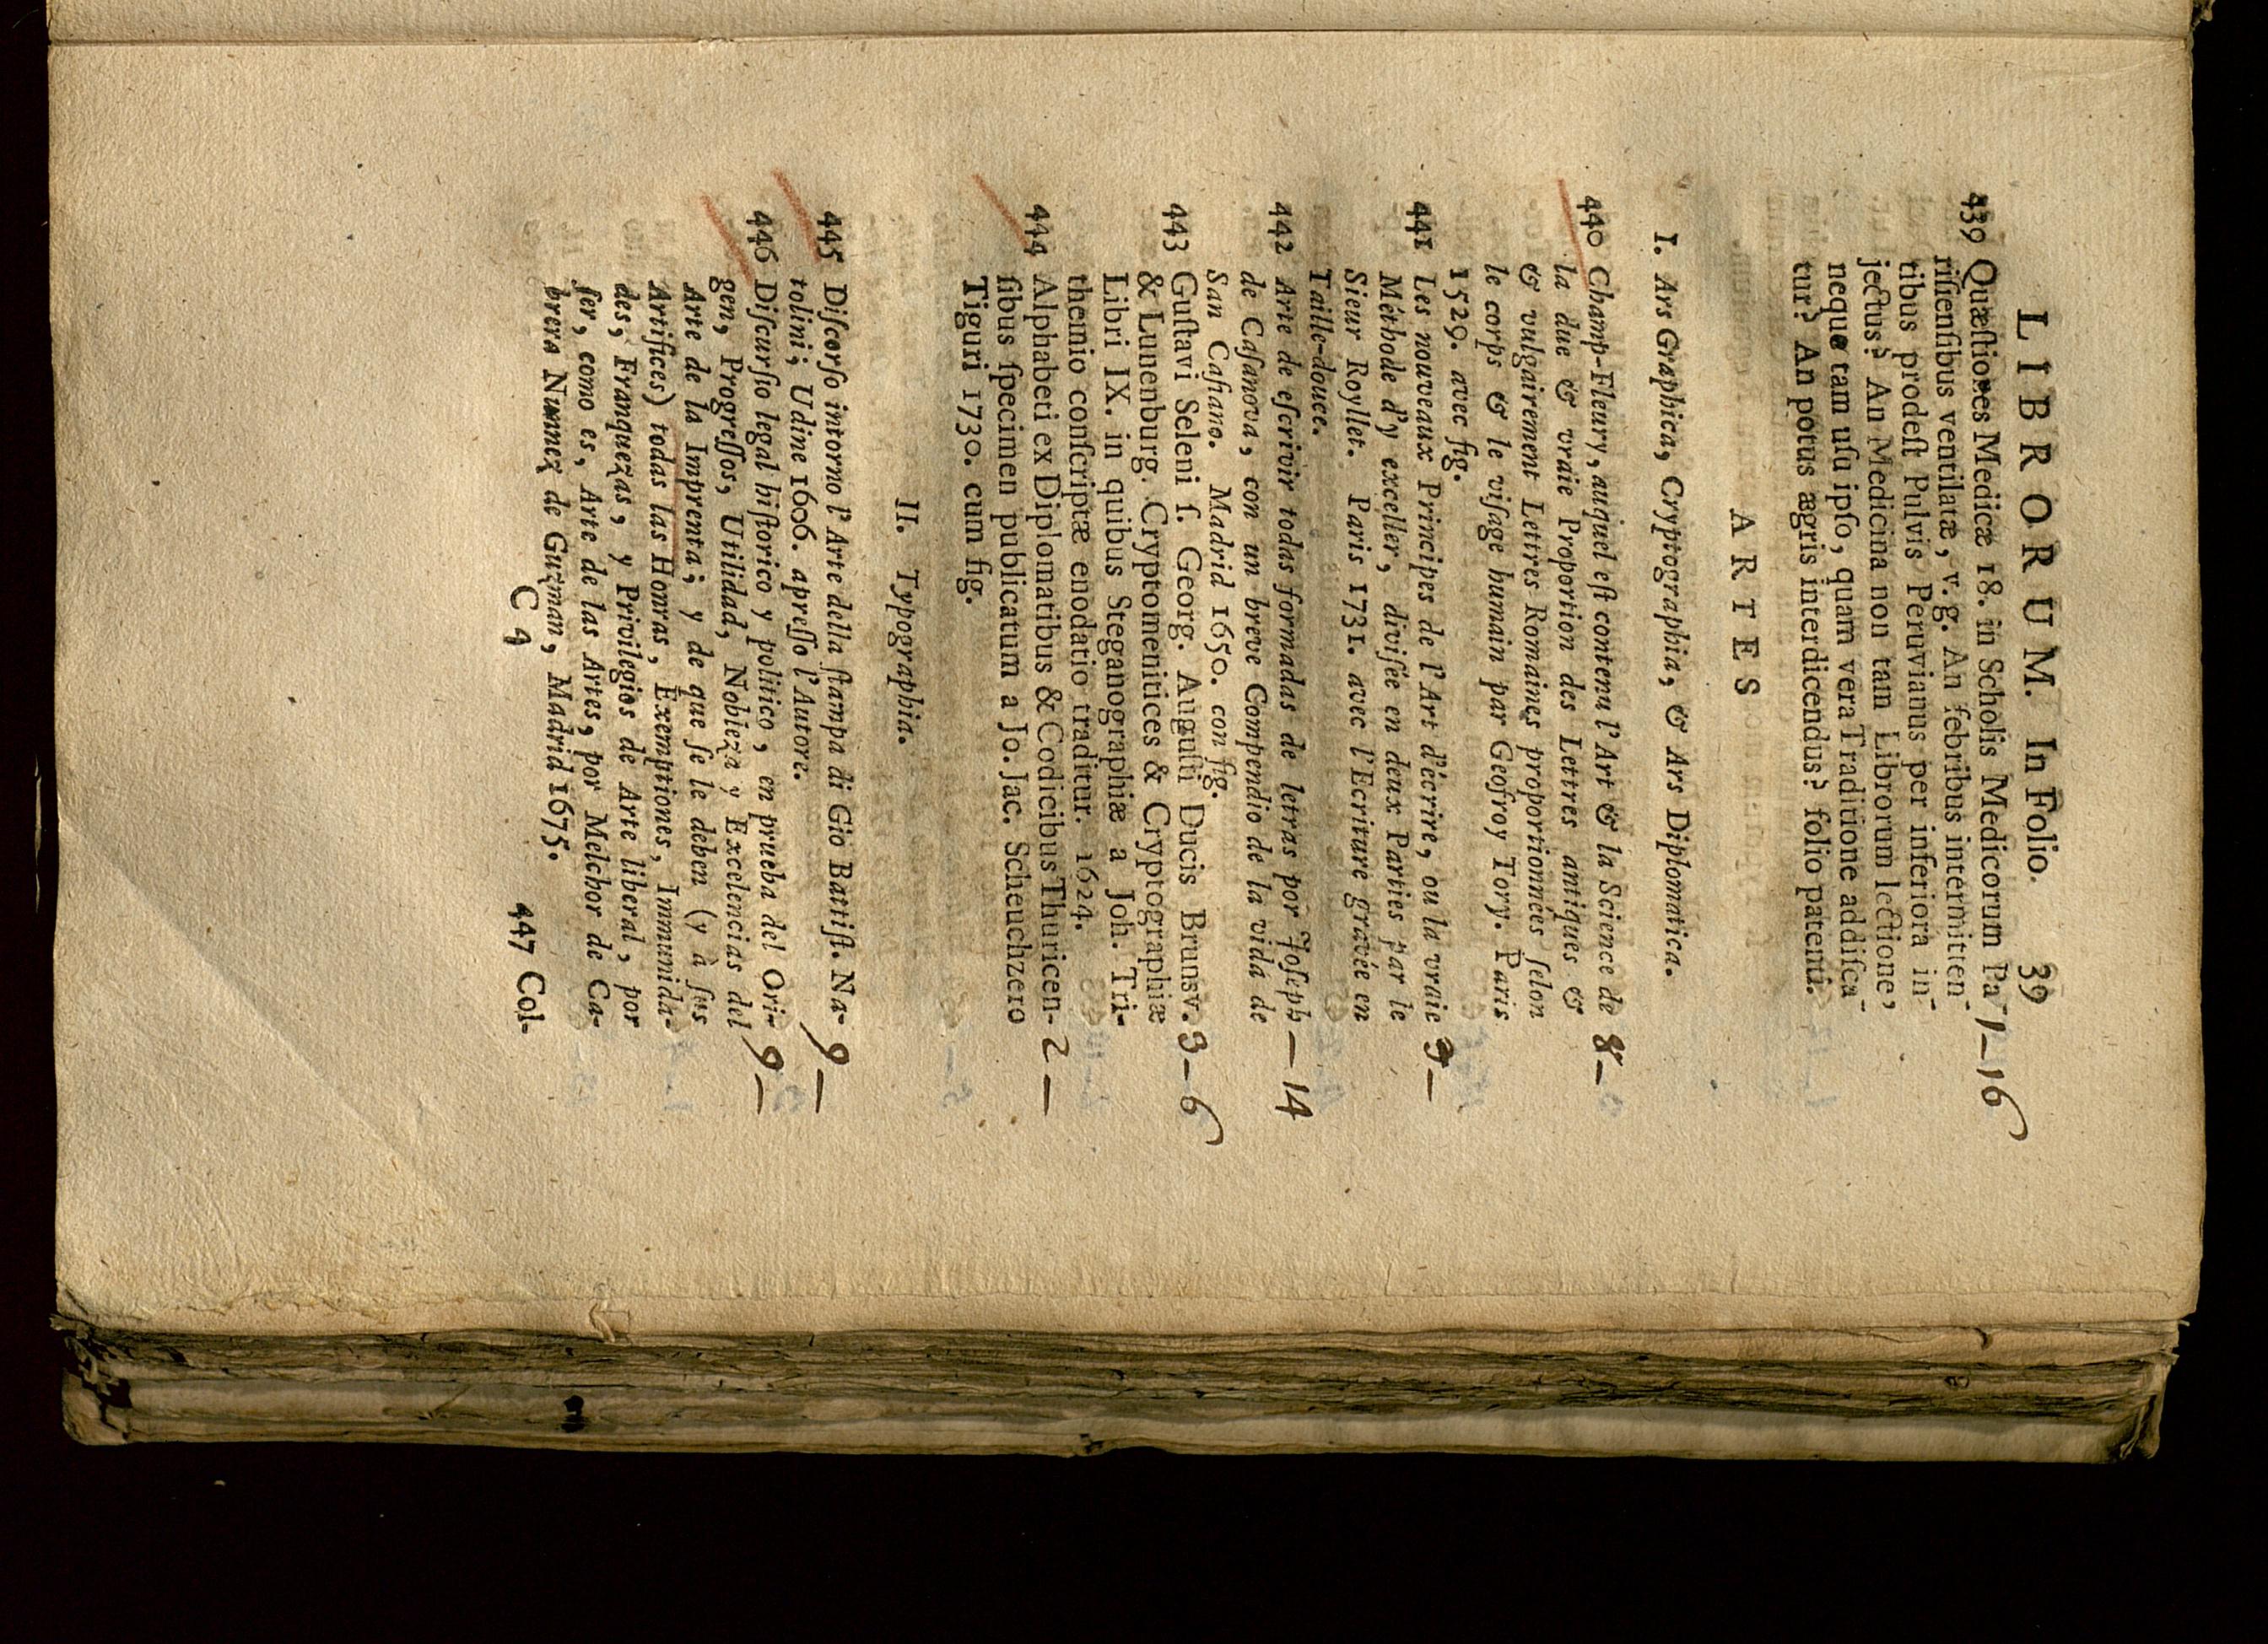 LIBRORUM. In Folio. 39
439 Quæſtiones Medicæ 18. in Scholis Medicorum Pa- 1-16
riſienſibus ventilatæ, v. g. An febribus intermitten-
tibus prodeſt Pulvis Peruvianus per inferiora in-
jectus? An Medicina non tam Librorum lectione,
neque tam uſu ipſo, quam vera Traditione addiſca-
tur? An potus ægris interdicendus? folio patenti.
ARTES
I. Ars Graphica, Cryptographia, & Ars Diplomatica.
440 Champ-Fleury, auquel eſt contenu l'Art & la Science de 8-
la due & vraie Proportion des Lettres antiques &
& vulgairement Lettres Romaines proportionnées ſelon
le corps & le viſage humain par Geofroy Tory. Paris
1529. avec fig.
441 Les nouveaux Principes de l'Art d'écrire, ou la vraie 3-
Méthode d'y exceller, diviſée en deux Parties par le
Sieur Royllet. Paris 1731. avec l'Ecriture gravée en
Taille-douce.
442 Arte de eſcrivir todas formadas de letras por Joſeph -14
de Caſanova, con un breve Compendio de la vida de
San Caſiano. Madrid 1650. con fig.
443 Guſtavi Seleni ſ. Georg. Auguſti Ducis Brunsv. 3-6
& Lunenburg. Cryptomenitices & Cryptographiæ
Libri IX. in quibus Steganographiæ a Joh. Tri-
themio conſcriptæ enodatio traditur. 1624.
444 Alphabeti ex Diplomatibus & Codicibus Thuricen- 2-
ſibus ſpecimen publicatum a Jo. Jac. Scheuchzero
Tiguri 1730. cum fig.
II. Typographia.
445 Diſcorſo intorno l'Arte della ſtampa di Gio Battiſt. Na- 9-
tolini; Udine 1606. apreſſo l'Autore.
446 Diſcurſio legal hiſtorico y politico, en prueba del Ori- 9-
gen, Progreſſos, Utilidad, Nobleza y Excelencias del
Arte de la Imprenta; y de que ſe le deben (y à ſus
Artifices) todas las Honras, Exemptiones, Immunida-
des, Franquezas, y Privilegios de Arte liberal, por
ſer, como es, Arte de las Artes, por Melchor de Ca-
brera Nunnez de Guzman, Madrid 1675.
C 4
447 Col-